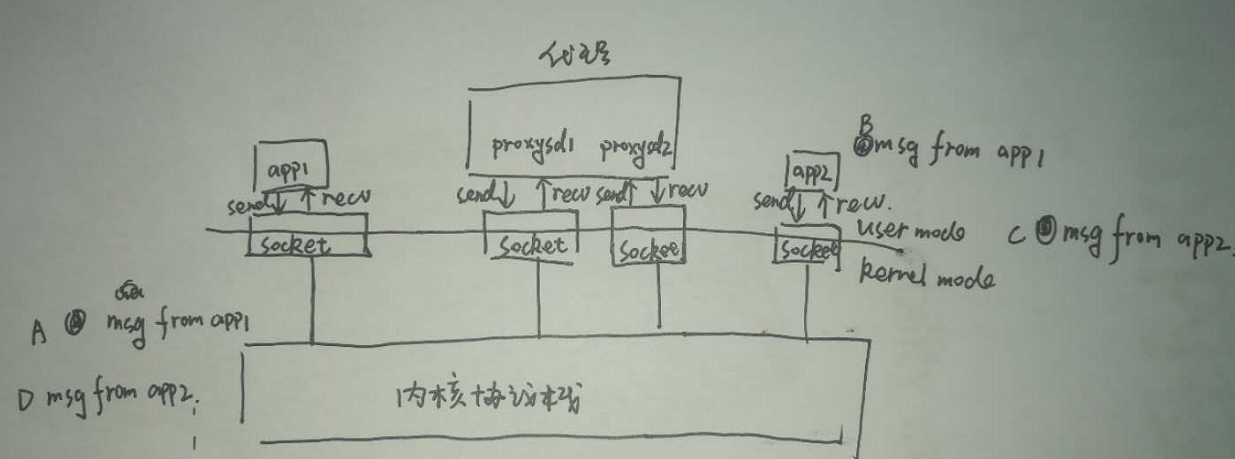 代理
proxysd1 proxysd2
app1
send recv
send recv send recv
app2
send recv.
B msg from app1
socket
socket
socket
socket
user mode
kernel mode
C msg from app2
A msg from app1
D msg from app2
内核协议栈